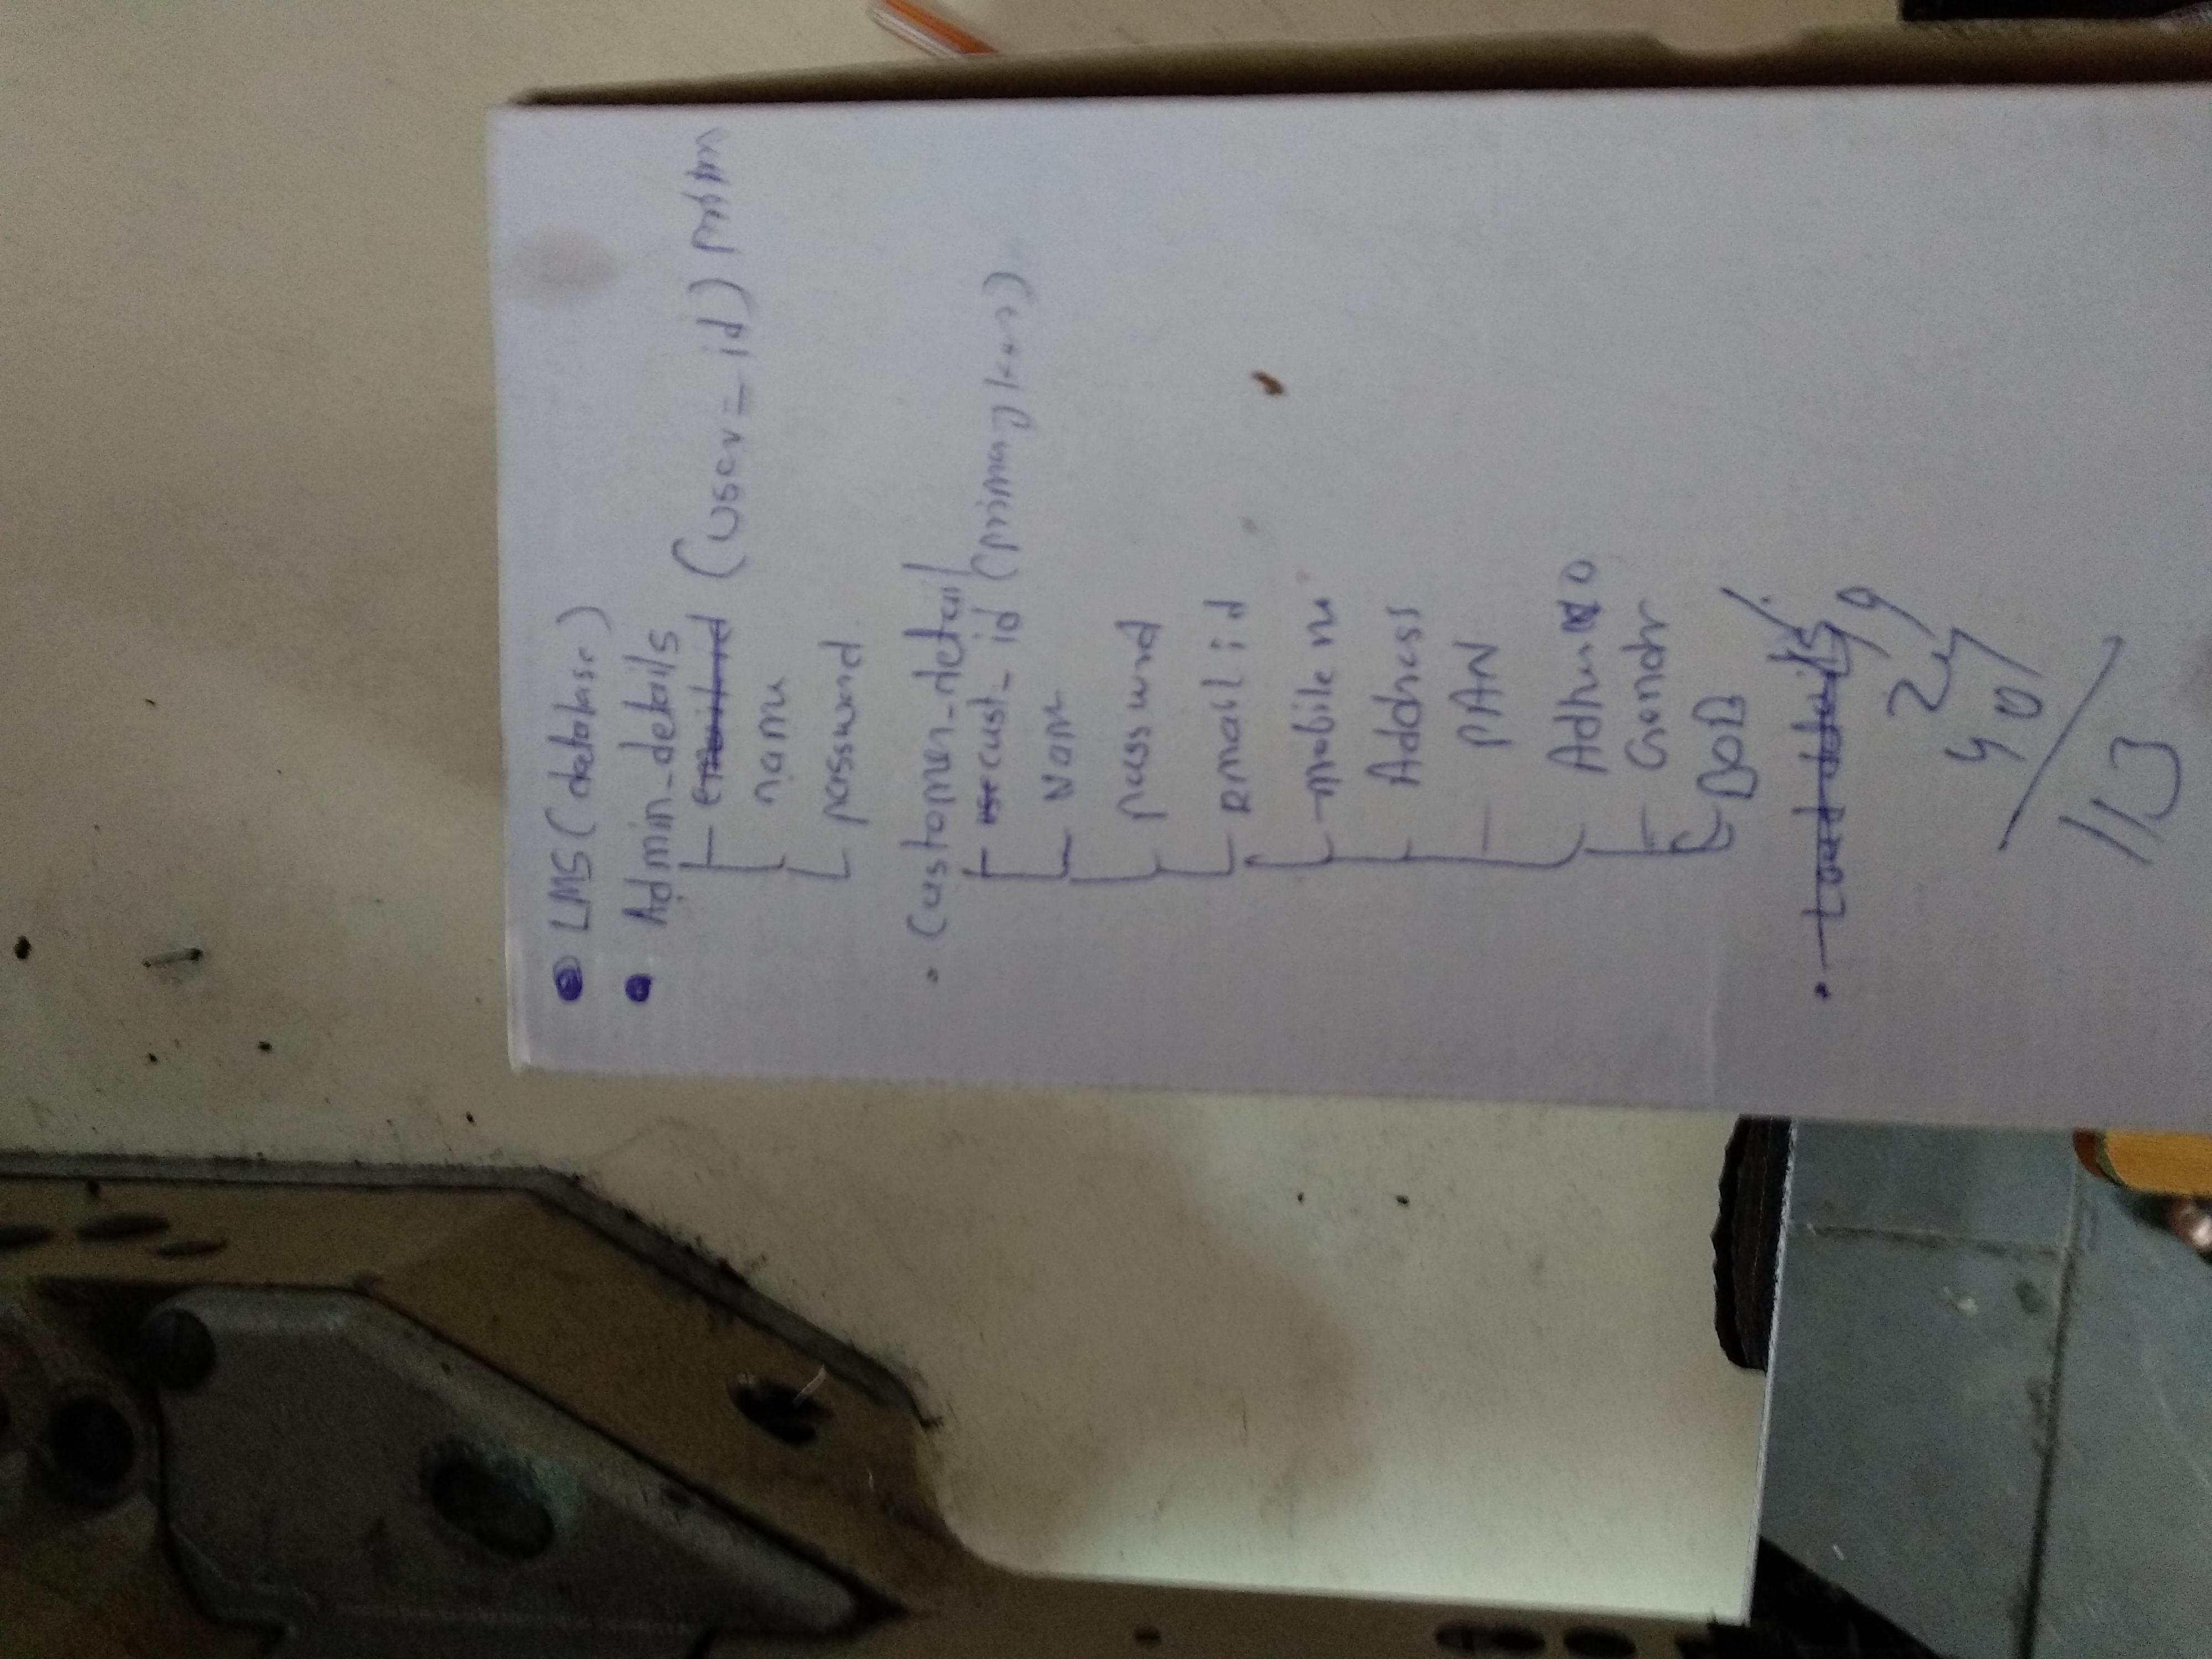 LMS (database)
Admin_details
(user_id)
name
password
Customer_detail
cust_id (primary key)
Name
password
email id
mobile no
Address
PAN
Gender
DOB
24
40
113